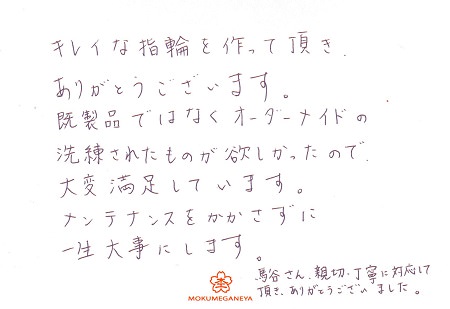 キレイな指輪を作って頂き、
ありがとうございます。
既製品ではなくオーダーメイドの
洗練されたものが欲しかったので、
大変満足しています。
メンテナンスをかかさずに
一生大事にします。
馬谷さん、親切、丁寧に対応して
頂き、ありがとうございました。
MOKUMEGANEYA